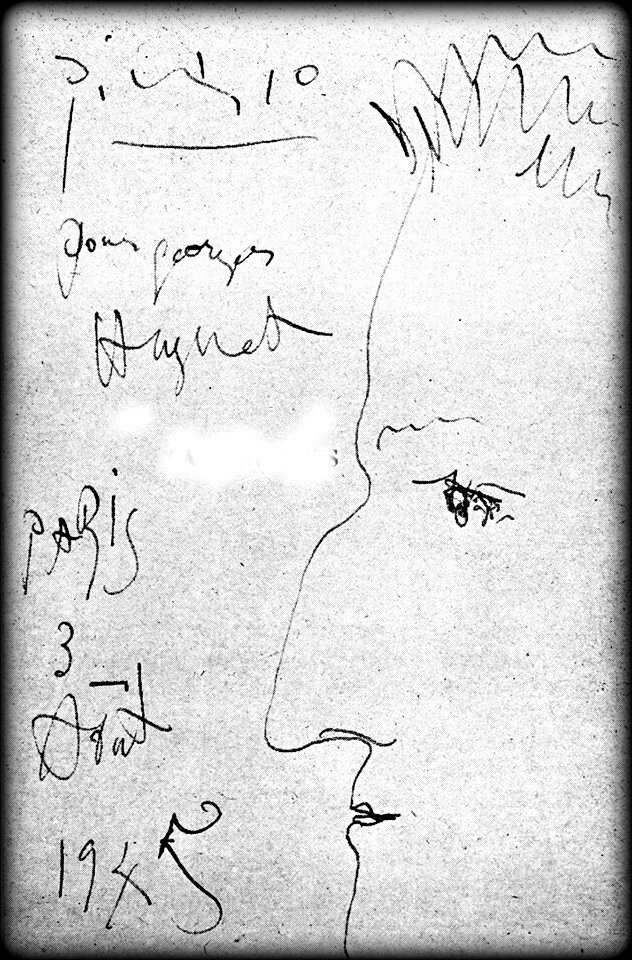 Picasso
pour georges
Hugnet
PARIS
3
Août
1945